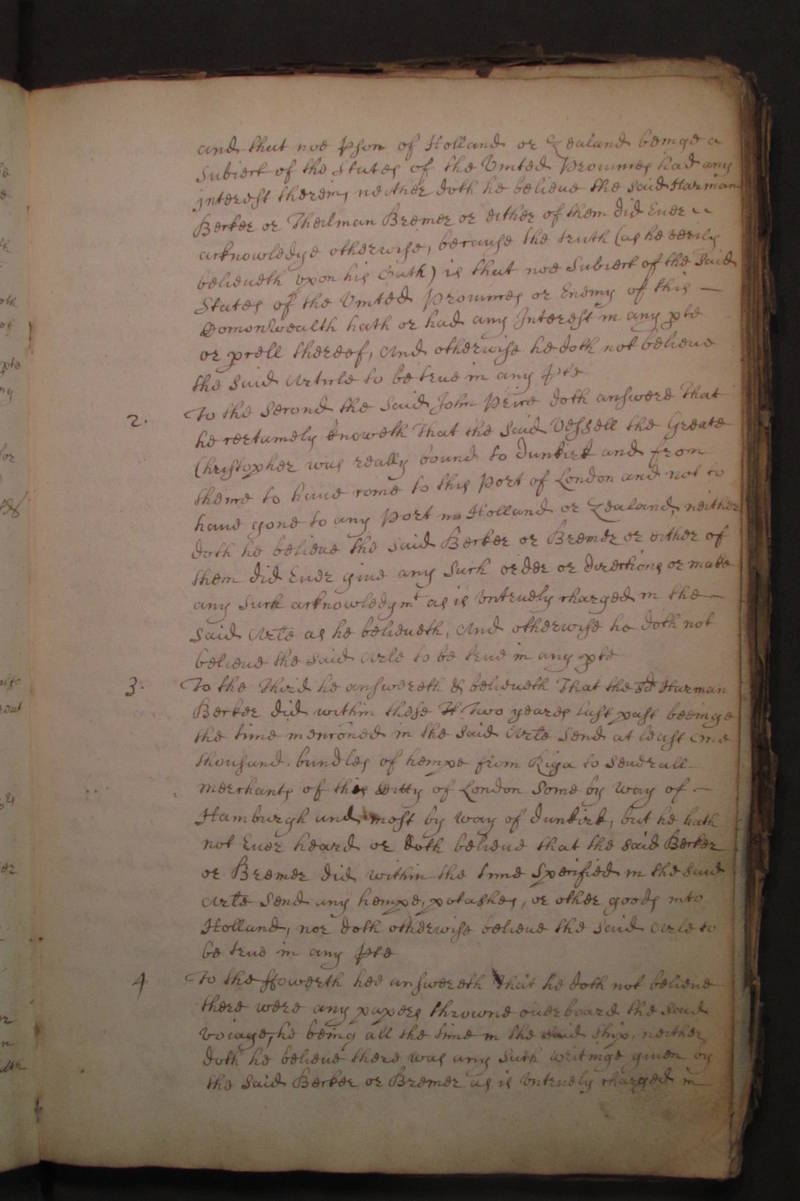 and that noe pson of Holland or Zealand beinge a
Subiect of the States of the Vnited Prouinces had any
jnterest therein, neither doth he beleiue the said Harman
Berker or Theilman Bremer or either of them did Euer
acknowledge otherwise, because the truth (as he verily
beleiueth vpon his Oath) is that noe Subiect of the said
States of the Vnited Prouinces or Enemy of this
Comonwealth hath or had any Interest in any pte
or prcell thereof, And otherwise he doth not beleiue
the said Article to be true in any pte
2. To the Second the said John Peirce doth answere That
he certainely knoweth That the said Vessell the Greate
Christopher was really bound to Dunkirk and from
thence to haue come to this Port of London and not to
haue gone to any Port in Holland or Zealand, neither
doth he beleiue the said Berker or Bremer or either of
them did Euer giue any Such order or directions or make
any Such acknowledgmt as is vntruely charged in the
said Arte as he beleiueth, And otherwise he doth not
beleiue the said Arle to be true in any pte
3. To the Third he answereth & beleiueth That the sd Harman
Berker did within these Two yeares last past beeinge
the time menconed in the said Arte Send at least one
thousand bundles of hempe from Riga to Seuerall
merchants of this Citty of London Some by way of
Hamburgh and most by way of Dunkirk, but he hath
not Euer heard or doth beleiue that the said Berker
or Bremer did within the time Specified in the said
Arte Send any hempe, potashes, or other goods into
Holland, nor doth otherwise beleiue the said Arle to
be true in any pte
4 To the ffowerth hee answereth That he doth not beleiue
there were any papers throwne ouerboard the said
voiage, he being all the time in the said ship, neither
doth he beleiue there was any Such writinge giuen by
the said Berker or Bremer as is vntruely charged in